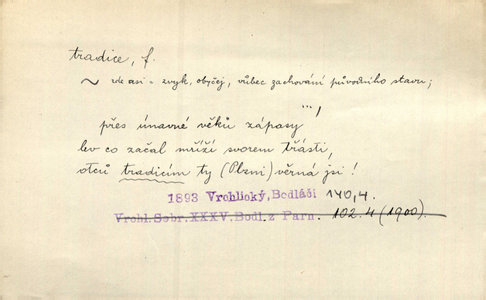 tradice, f.
~ zde asi = zvyk, obyčej, vůbec zachování původního stavu;
...,
přes únavné věků zápasy
lev co začal mříží svorem třásti,
otců tradicím ty (Plzni) věrná jsi!
1893 Vrchlický, Bodláčí 140, 4.
Vrchl. Sebr. XXXV. Bodl. z Parn. 102. 4 (1900).